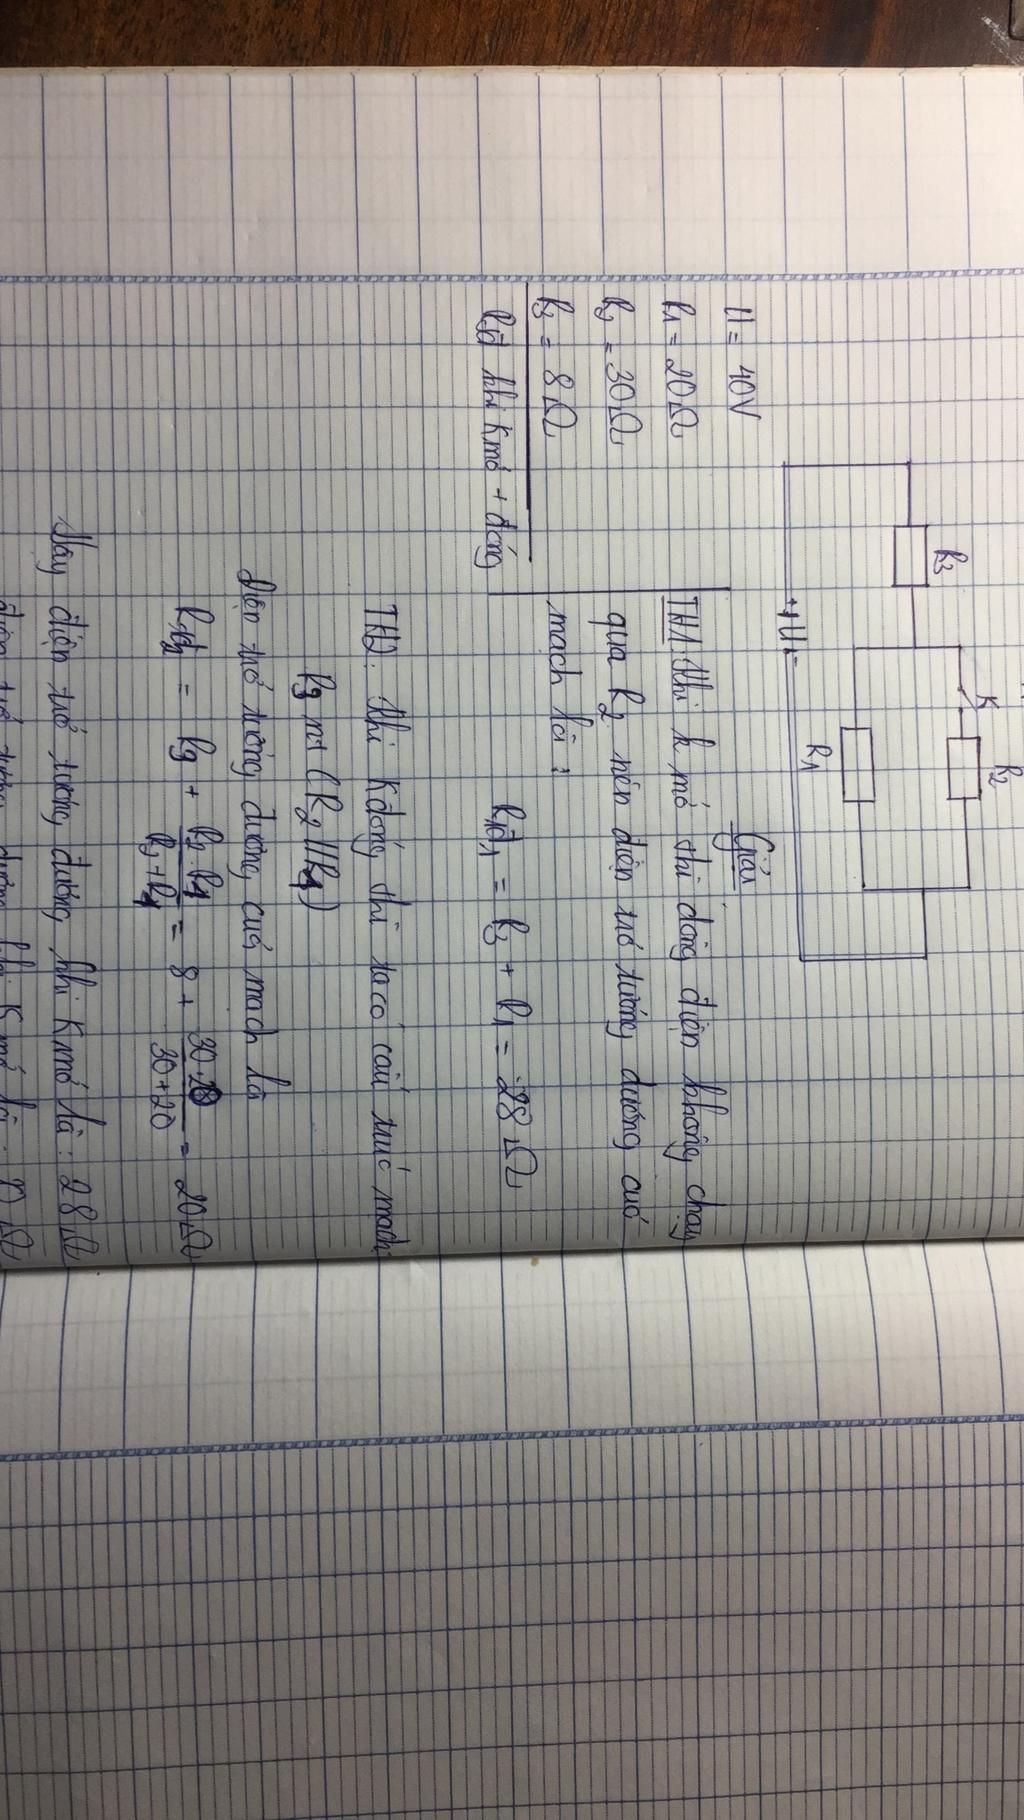 R3
K
R2
R1
+ U -
U = 40V
R1 = 20Ω
R2 = 30Ω
R3 = 8Ω
Rtđ khi K mở + đóng
Giải
TH1: Khi k mở thì dòng điện không chạy
qua R2 nên điện trở tương đương của
mạch là :
Rtđ1 = R3 + R1 = 28Ω
TH2: Khi K đóng thì ta có cấu trúc mạch:
R3 nt (R2 // R1)
Điện trở tương đương của mạch là
Rtđ2 = R3 + R2.R1 / R2+R1 = 8 + 30.20 / 30+20 = 20Ω
Vậy điện trở tương đương khi K mở là : 28Ω
điện trở tương đương khi K là :